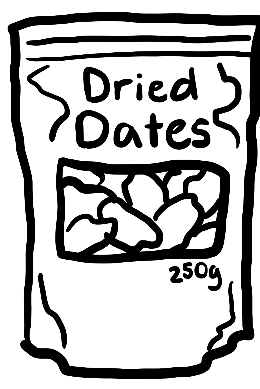 Dried
Dates
250g